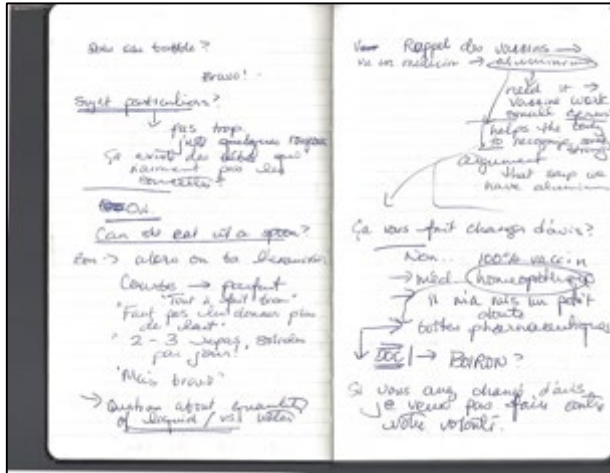 Bravo!
Sujet particuliers?
pas trop
juste quelques
Ça existe des bébés qui
pas les
Oui
Can she eat w/ a spoon?
alors on va l'examiner
Courbes → parfait
"Tout à fait bon"
"Faut pas lui donner plus
de lait"
2 - 3 repas, solides
par jour!
"Mais bravo"
→ Question about quantity
of liquid / vs water
Rappel des vaccins →
vu un médecin → aluminium
need it →
vaccine work
helps the body
to recognize
argument
that we
have aluminium
Ça vous fait changer d'avis?
Non.. 100% vaccin
→ méd. homéopathique
→ il m'a mis un petit
doute
→ boîtes pharmaceutiques
→ BOIRON?
Si vous avez changé d'avis,
je veux pas faire contre
votre volonté.